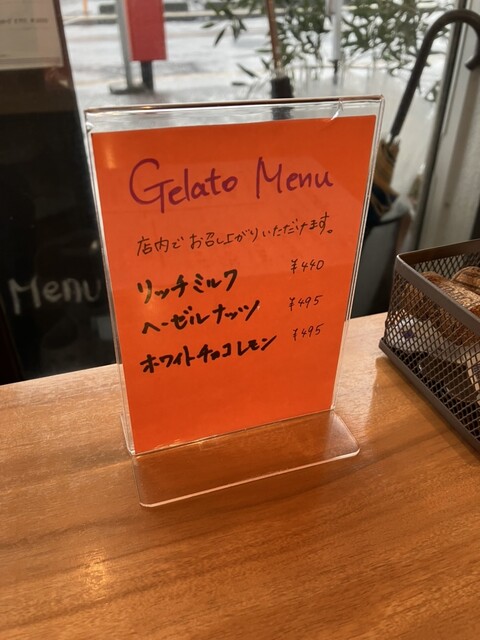 Gelato Menu
店内でお召し上がりいただけます。
リッチミルク ¥440
ヘーゼルナッツ ¥495
ホワイトチョコレモン ¥495
Menu